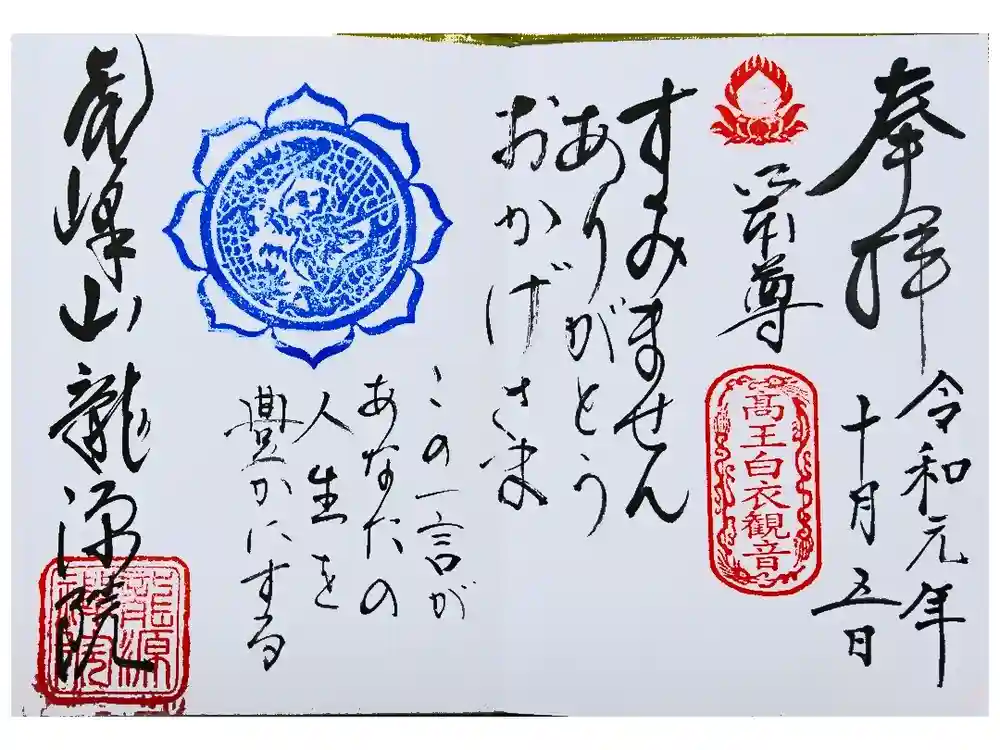 奉拝
令和元年
十月五日
御本尊
高王白衣観音
すみません
ありがとう
おかげさま
この一言が
あなたの
人生を
豊かにする
虎峰山龍源院
龍源